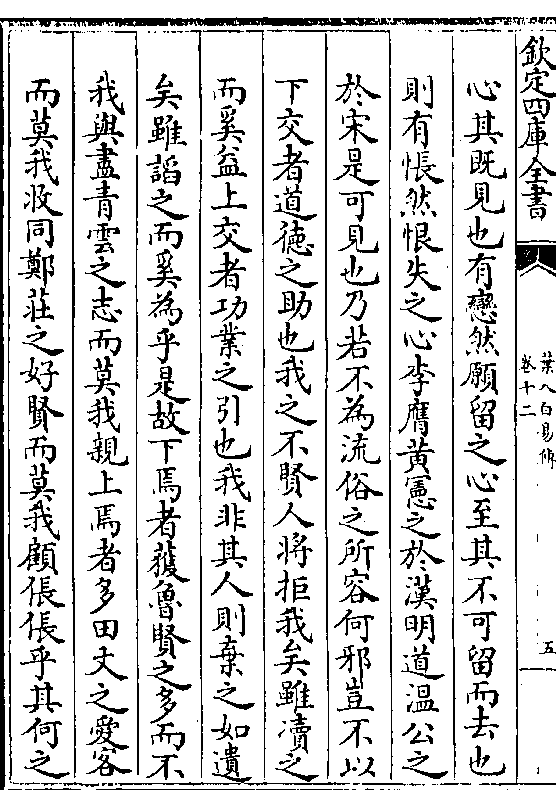 欽定四庫全書
葉八白易傳
卷十二
五
心其既見也有戀然願留之心至其不可留而去也
則有悵然恨失之心李膺黃憲之於漢明道溫公之
於宋是可見也乃若不為流俗之所容何邪豈不以
下交者道德之助也我之不賢人將拒我矣雖瀆之
而奚益上交者功業之引也我非其人則棄之如遺
矣雖諂之而奚為乎是故下焉者獲魯賢之多而不
我與盡青雲之志而莫我親上焉者多田文之愛客
而莫我收同鄭莊之好賢而莫我顧倀倀乎其何之